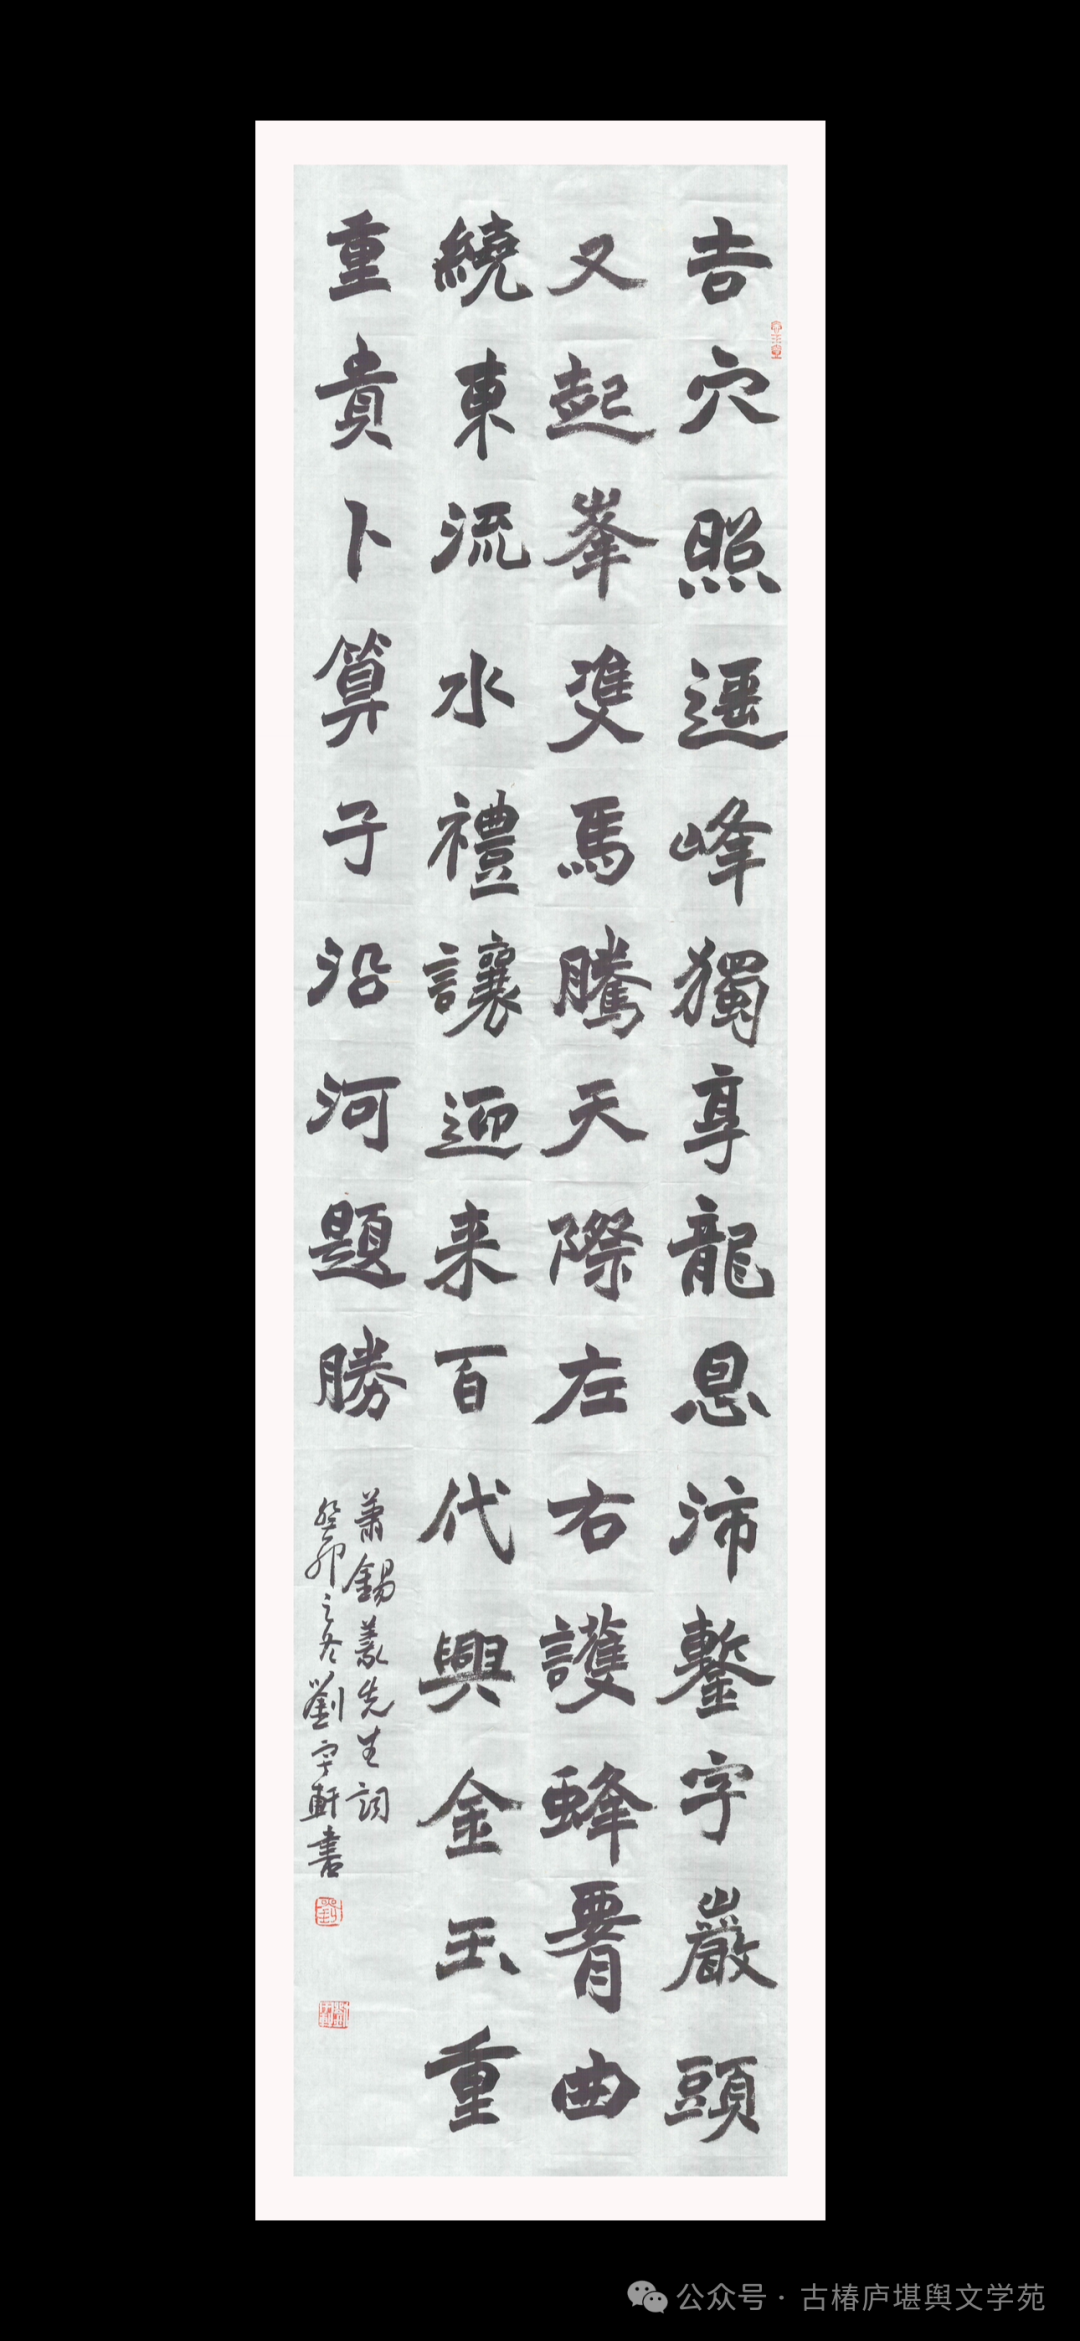 吉穴照遥峰獨享龍恩沛鏨字巖頭
又起峯雙馬騰天際左右護蜂腎曲
繞東流水禮讓迎来百代興金玉重
重貴卜算子沿河題勝
萧錫義先生詞
癸卯之冬劉宇軒書
公众号·古椿庐堪舆文学苑